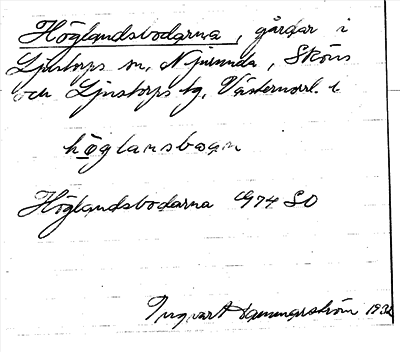 Höglandsbodarna, gårdar i
Ljustorps sn, Njurunda, Sköns
och Ljustorps tg, Västernorrl. l
höglansboan
Höglandsbodarna 1974 SO
Ingvart Hammarström 193